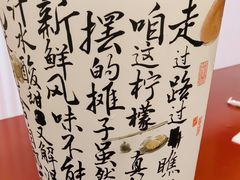 走过路过瞧
咱这柠檬真
摆的摊子虽然
新鲜风味不能
汁水饱甜又解